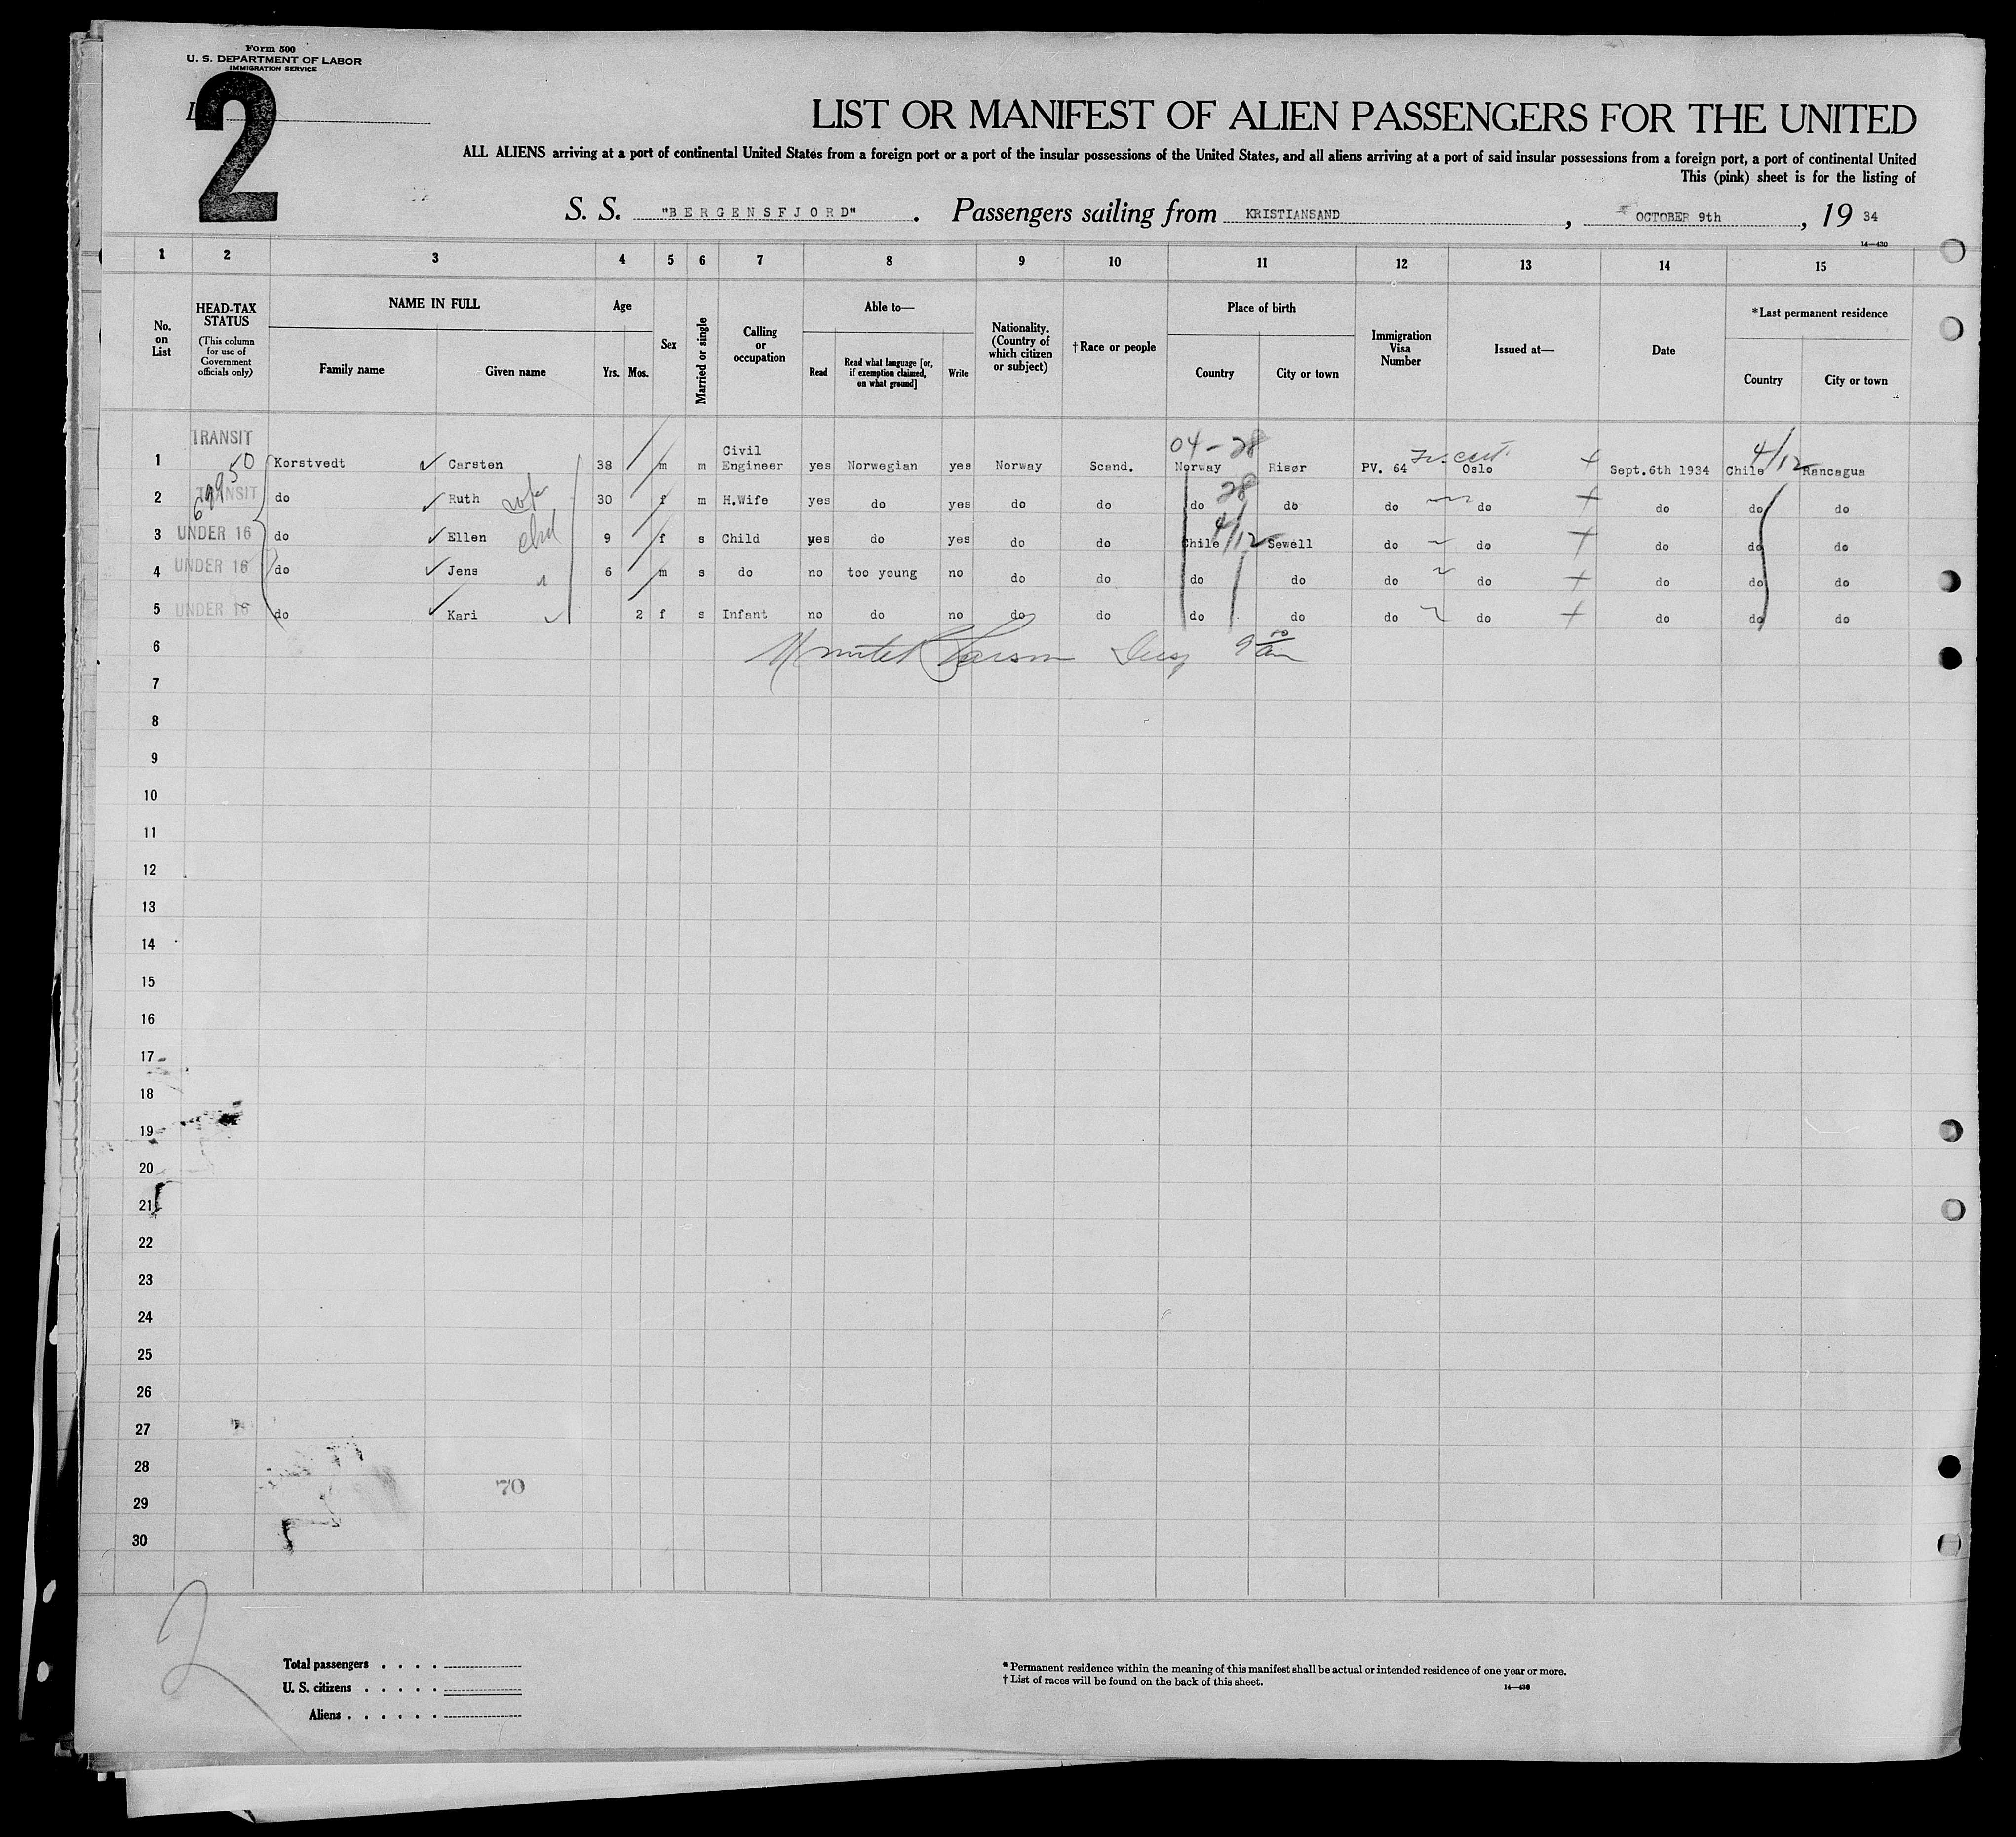 Form 500
U. S. DEPARTMENT OF LABOR
IMMIGRATION SERVICE
2
LIST OR MANIFEST OF ALIEN PASSENGERS FOR THE UNITED
ALL ALIENS arriving at a port of continental United States from a foreign port or a port of the insular possessions of the United States, and all aliens arriving at a port of said insular possessions from a foreign port, a port of continental United
This (pink) sheet is for the listing of
S. S. "BERGENSFJORD". Passengers sailing from KRISTIANSAND, OCTOBER 9th, 19 34
14—430
1 2 3 4 5 6 7 8 9 10 11 12 13 14 15
No. on List
HEAD-TAX STATUS (This column for use of Government officials only)
NAME IN FULL Family name Given name
Age Yrs. Mos.
Sex
Married or single
Calling or occupation
Able to— Read Read what language [or, if exemption claimed, on what ground] Write
Nationality. (Country of which citizen or subject)
†Race or people
Place of birth Country City or town
Immigration Visa Number
Issued at—
Date
*Last permanent residence Country City or town
04-28
1 TRANSIT Korstvedt Carsten 38 m m Civil Engineer yes Norwegian yes Norway Scand. Norway Risør PV. 64 Oslo Sept.6th 1934 Chile 4/12 Rancagua
2 TRANSIT do Ruth 30 f m H.Wife yes do yes do do do 28 do do do do do do
3 UNDER 16 do Ellen 9 f s Child yes do yes do do Chile 4/12 Sewell do do do do do
4 UNDER 16 do Jens 6 m s do no too young no do do do do do do do do do
5 UNDER 16 do Kari 2 f s Infant no do no do do do do do do do do do
6
7
8
9
10
11
12
13
14
15
16
17
18
19
20
21
22
23
24
25
26
27
28
70
29
30
2
Total passengers . . . .
U. S. citizens . . . . .
Aliens . . . . . .
* Permanent residence within the meaning of this manifest shall be actual or intended residence of one year or more.
† List of races will be found on the back of this sheet.
14—430